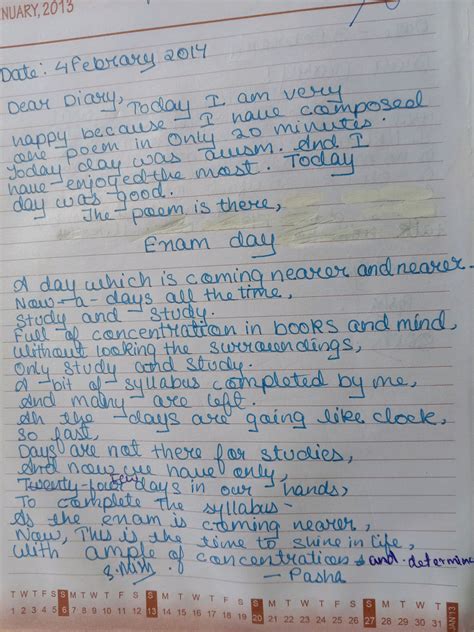 NUARY, 2013
Date: 4 February 2014
Dear Diary, Today I am very
happy because I have composed
one poem in only 20 minutes.
Today day was awsm. And I
have enjoyed the most. Today
day was good.
The poem is there,
Exam day
A day which is coming nearer and nearer.
Now-a-days all the time,
Study and study.
Full of concentration in books and mind,
Without looking the surroundings,
Only study and study.
A bit of syllabus completed by me,
And many are left.
Ah the days are going like clock,
So fast,
Days are not there for studies,
And now we have only,
Twenty-four few days in our hands,
To complete the syllabus-
As the exam is coming nearer,
Now, This is the time to shine in life,
With ample of concentrations and determine
- Pasha
T W T F S S M T W T F S S M T W T F S S M T W T F S S M T W T
1 2 3 4 5 6 7 8 9 10 11 12 13 14 15 16 17 18 19 20 21 22 23 24 25 26 27 28 29 30 31 JAN'13